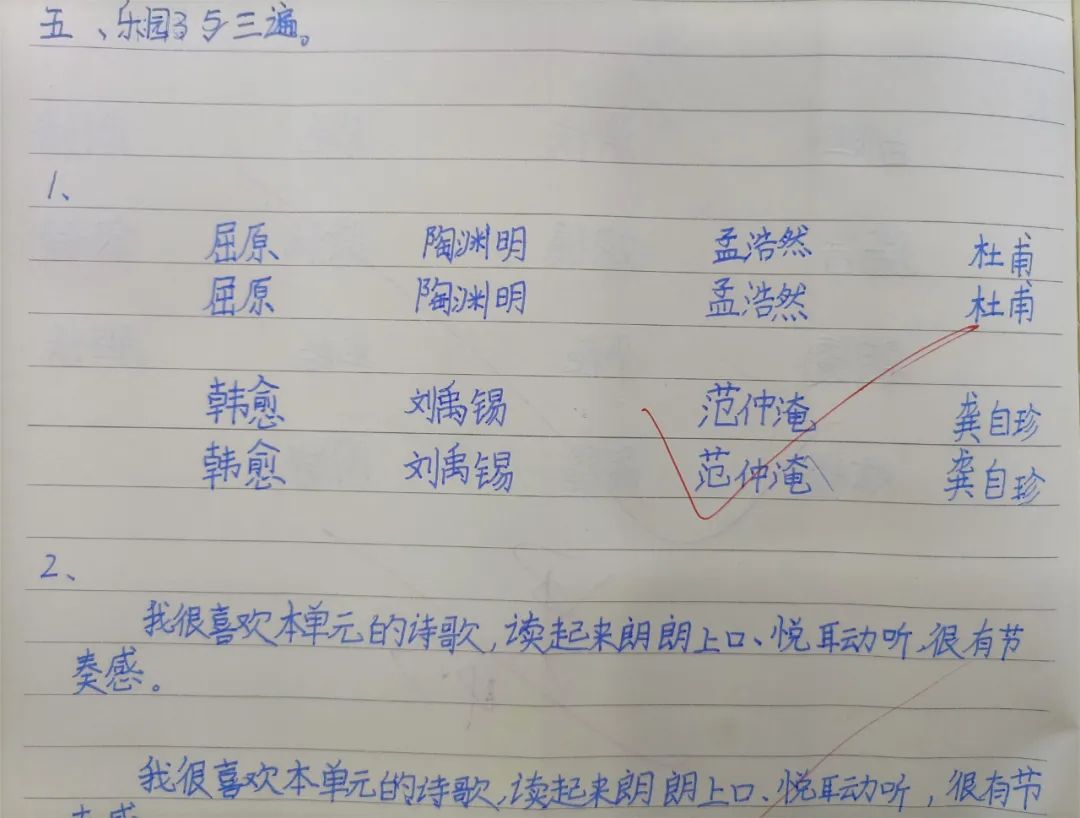 五、乐园3写三遍。
1、
屈原 陶渊明 孟浩然 杜甫
屈原 陶渊明 孟浩然 杜甫
韩愈 刘禹锡 范仲淹 龚自珍
韩愈 刘禹锡 范仲淹 龚自珍
2、
我很喜欢本单元的诗歌,读起来朗朗上口、悦耳动听,很有节
奏感。
我很喜欢本单元的诗歌,读起来朗朗上口、悦耳动听,很有节
奏感